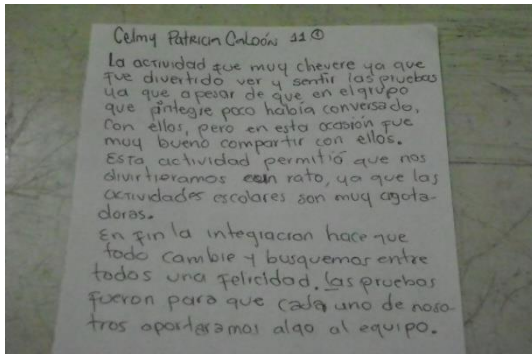 Celmy Patricia Caldón 11①
La actividad fue muy chevere ya que
fue divertido ver y sentir las pruebas
ya que apesar de que en el grupo
que integre poco había conversado,
con ellos, pero en esta ocasión fue
muy bueno compartir con ellos.
Esta, actividad permitió que nos
divirtieramos un rato, ya que las
actividades escolares son muy agota-
doras.
En fin la integracion hace que
todo cambie y busquemos entre
todos una felicidad. Las pruebas
fueron para que cada uno de noso-
tros aportaramos algo al equipo.